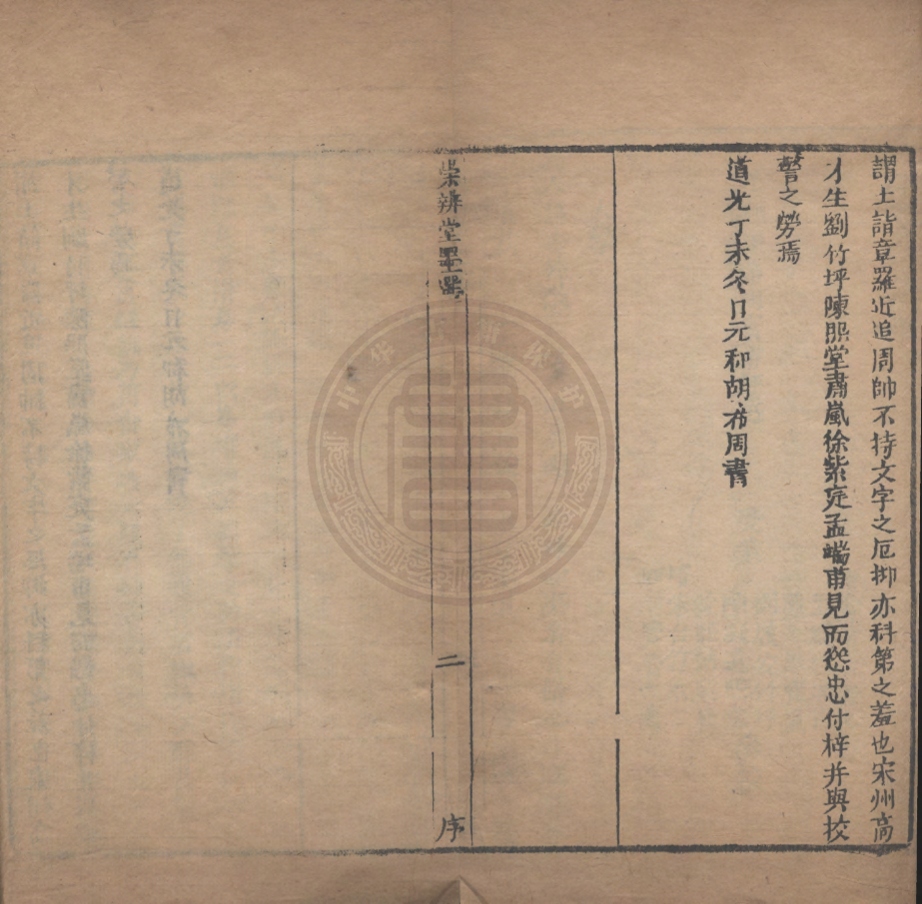 謂士詣章羅近追周帥不持文字之厄抑亦科第之羞也宋州高
才生劉竹坪陳熙堂肅嵐徐紫庭孟端甫見而慫忠付梓并與挍
讐之勞焉
道光丁未冬日元和胡希周書
崇辨堂墨選
二
序